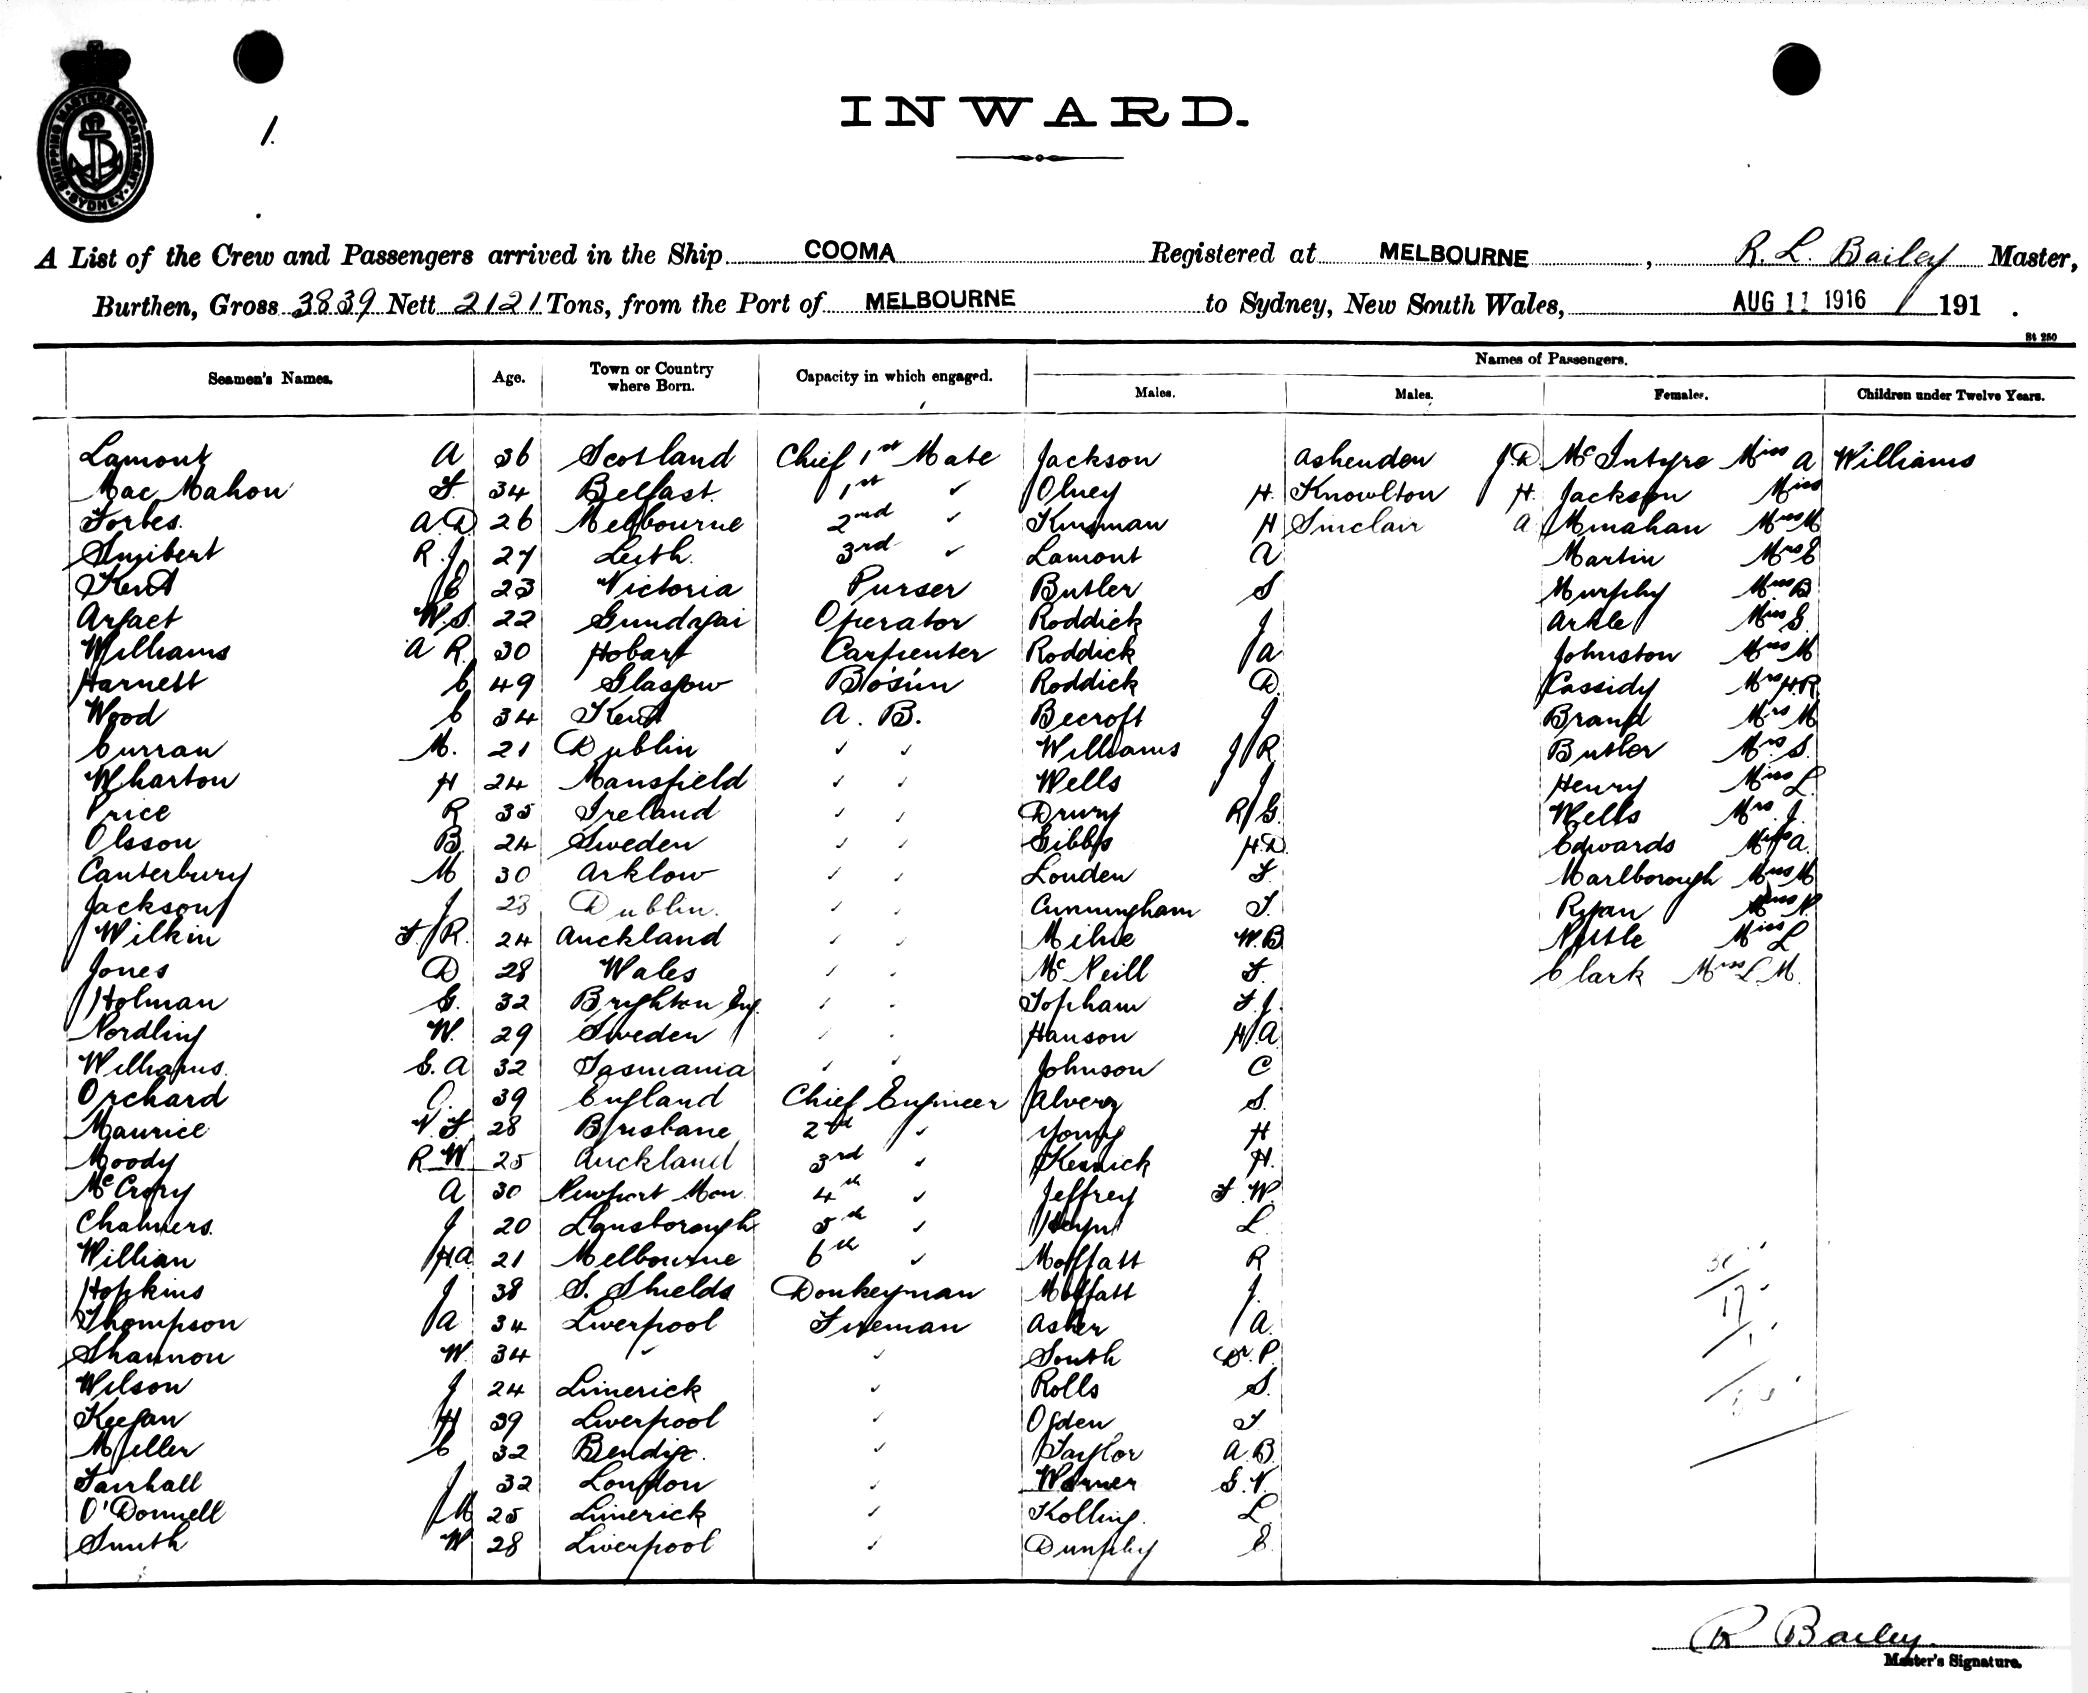 SHIPPING MASTERS DEPARTMENT. SYDNEY
1.
INWARD.
A List of the Crew and Passengers arrived in the Ship COOMA Registered at MELBOURNE, R. L. Bailey Master,
Burthen, Gross 3839 Nett 2121 Tons, from the Port of MELBOURNE to Sydney, New South Wales, AUG 11 1916 191 .
St 250
Seamen's Names. Age. Town or Country where Born. Capacity in which engaged. Names of Passengers.
Males. Males. Females. Children under Twelve Years.
Lamont A 36 Scotland Chief 1st Mate Jackson Ashenden J D McIntyre Miss A Williams
Mac Mahon F. 34 Belfast. 1st ✓ Olney H. Knowlton H. Jackson Miss
Forbes. A. D 26 Melbourne 2nd ✓ Kinsman H Sinclair A Minahan Miss M
Smibert R. J 27 Leith. 3rd ✓ Lamont A Martin Mrs E
Kent E 23 Victoria Purser Butler S Murphy Miss B
W. S. 22 Gundagai Operator Roddick J Arkle Miss G.
Williams A R. 30 Hobart Carpenter Roddick A Johnston Miss M
Harnett C 49 Glasgow Bo'sun Roddick D. Cassidy Mrs H. R.
Wood C 34 Kent A. B. Becroft J Brand Mrs M
Curran M. 21 Dublin ✓ ✓ Williams J R Butler Mrs S.
Wharton H 24 Mansfield ✓ ✓ Wells J Henry Miss L.
Price R 35 Ireland ✓ ✓ Drury R G. Wells Mrs J.
Olsson B. 24 Sweden ✓ ✓ Gibbs H. D. Edwards Miss A.
Canterbury M 30 Arklow ✓ ✓ Louden F. Marlborough Miss M
Jackson J 23 Dublin. ✓ ✓ Cunningham T. Ryan N.
Wilkin F. R. 24 Auckland ✓ ✓ Milne W. B. Nettle Miss L
Jones D 28 Wales ✓ ✓ McNeill F. Clark Miss L. M.
Holman G. 32 Brighton Eng. ✓ ✓ Topham F. J.
Nordling W. 29 Sweden ✓ ✓ Hanson H. A.
Williams. G. A 32 Tasmania ✓ ✓ Johnson C
Orchard O. 39 England Chief Engineer S.
Maurice N. F 28 Brisbane 2nd ✓ Young H
Moody R W 25 Auckland 3rd ✓ H.
McCrory A 30 Newport Mon. 4th ✓ Jeffrey F. W.
Chalmers. J 20 5th ✓ L.
Willian H A 21 Melbourne 6th ✓ Moffatt R
Hopkins J 38 S. Shields Donkeyman Moffatt J.
Thompson A 34 Liverpool Fireman Asher A.
Shannon W. 34 ✓ ✓ South Dr. P.
Wilson J 24 Limerick ✓ Rolls S.
Keegan H 39 Liverpool ✓ Ogden T
Miller C 32 Bendigo. ✓ Taylor A. B.
Fairhall J 32 London ✓ Warner G. V.
O'Donnell M 25 Limerick ✓ Kolling. L.
Smith W 28 Liverpool ✓ Dunphy E.
R Bailey.
Master's Signature.